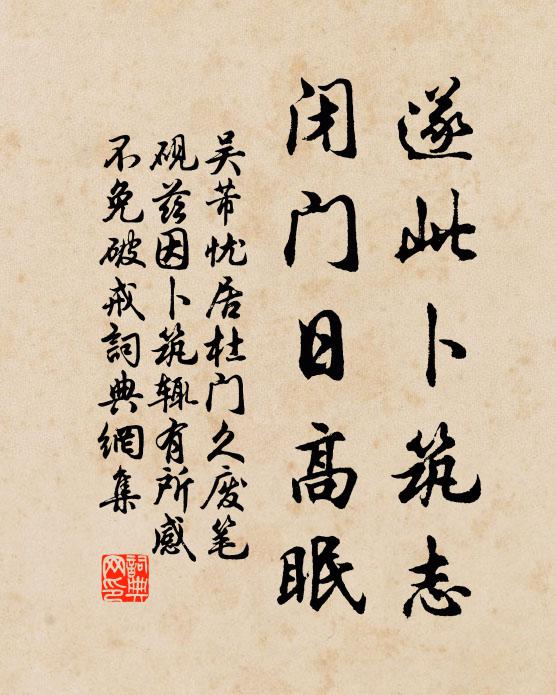 遂此卜筑志
闭门日高眠
吴芾忧居杜门久废笔
砚兹因卜筑辄有所感
不免破戒詞典網集
詞典
网印